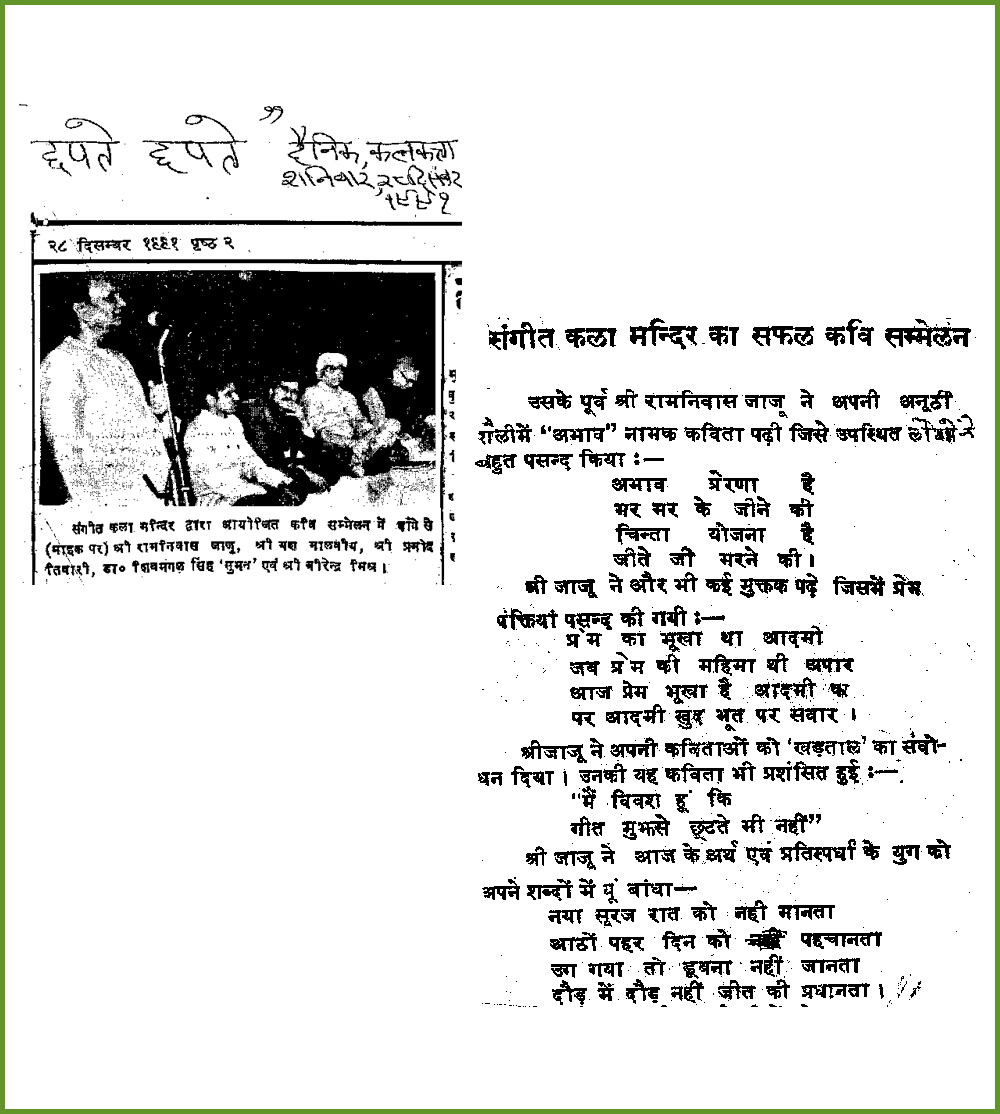 छपते छपते"
दैनिक, कलकत्ता
शनिवार, २८ दिसंबर
१९९१
२८ दिसम्बर १९९१ पृष्ठ २
संगीत कला मन्दिर द्वारा आयोजित कवि सम्मेलन में बाँये से
(माइक पर) श्री रामनिवास जाजू, श्री यश मालवीय, श्री प्रमोद
तिवारी, डा० शिवमंगल सिंह 'सुमन' एवं श्री वीरेन्द्र मिश्र।
संगीत कला मन्दिर का सफल कवि सम्मेलन
उसके पूर्व श्री रामनिवास जाजू ने अपनी अनूठी
शैलीमें "अभाव" नामक कविता पढ़ी जिसे उपस्थित लोगों ने
बहुत पसन्द किया :—
अभाव प्रेरणा है
भर मर के जीने की
चिन्ता योजना है
जीते जी मरने की।
श्री जाजू ने और भी कई मुक्तक पढ़े जिसमें प्रेम
पंक्तियां पसन्द की गयी :—
प्रेम का भूखा था आदमी
जब प्रेम की महिमा थी अपार
आज प्रेम भूखा है आदमी का
पर आदमी खुद भूत पर सवार।
श्रीजाजू ने अपनी कविताओं को 'खड़ताल' का संबो-
धन दिया। उनकी यह कविता भी प्रशंसित हुई :—
"मैं विवश हूं कि
गीत मुझसे छूटते भी नहीं"
श्री जाजू ने आज के अर्थ एवं प्रतिस्पर्धा के युग को
अपने शब्दों में यूं बांधा—
नया सूरज रात को नही मानता
आठों पहर दिन को नहीं पहचानता
उग गया तो डूबना नहीं जानता
दौड़ में दौड़ नहीं जीत की प्रधानता।